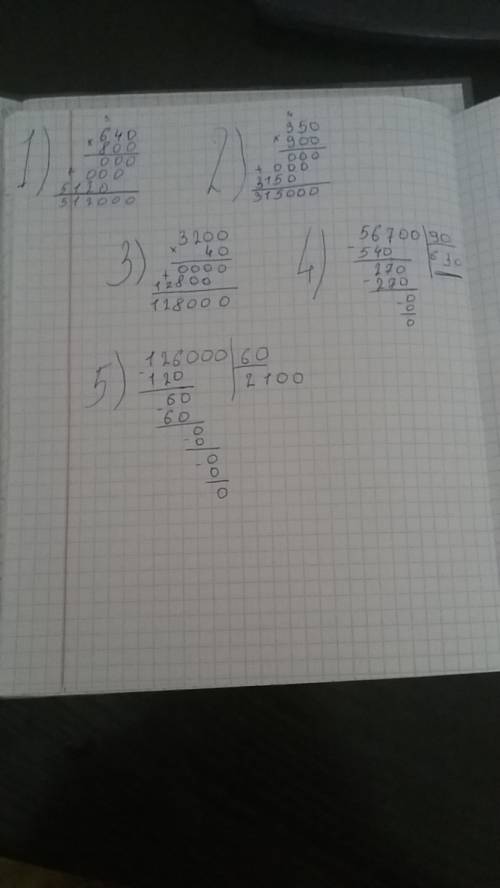 1)
3
640
× 800
000
+ 000
5120
512000
2)
4
350
× 900
000
+ 000
3150
315000
3)
3200
× 40
+ 0000
12800
128000
4)
56700 | 90
- 540 630
270
- 270
- 0
0
0
5)
126000 | 60
- 120 2100
60
- 60
0
- 0
- 0
0
0